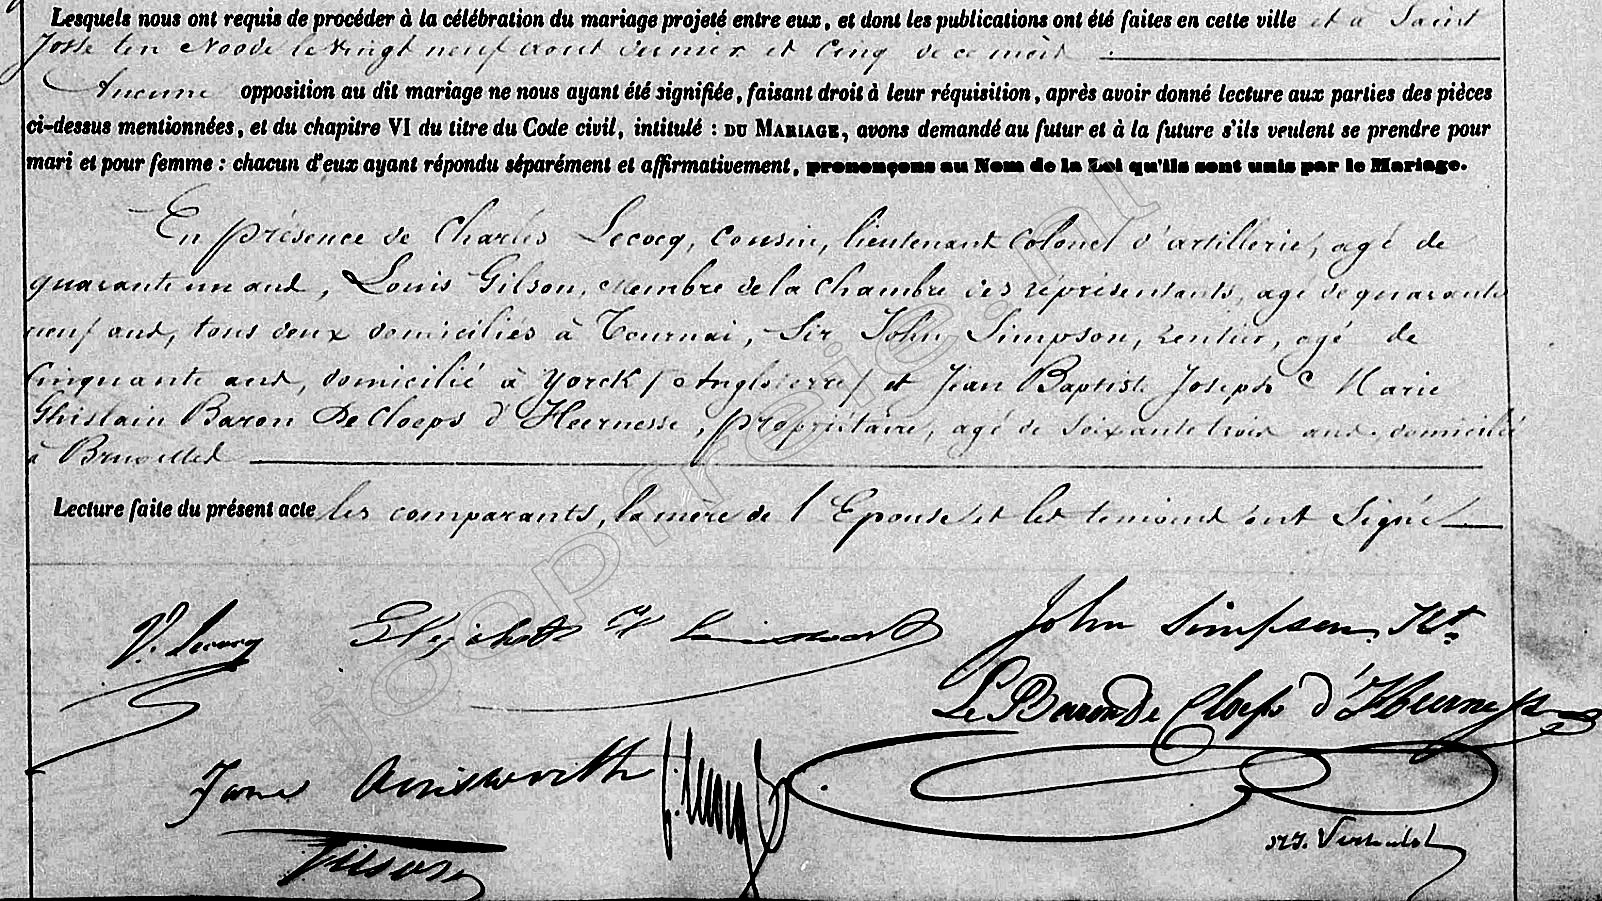 Lesquels nous ont requis de procéder à la célébration du mariage projeté entre eux, et dont les publications ont été faites en cette ville et à Saint
Josse ten Noode le vingt neuf aout dernier et cinq de ce mois
Aucune opposition au dit mariage ne nous ayant été signifiée, faisant droit à leur réquisition, après avoir donné lecture aux parties des pièces
ci-dessus mentionnées, et du chapitre VI du titre du Code civil, intitulé : DU MARIAGE, avons demandé au futur et à la future s'ils veulent se prendre pour
mari et pour femme : chacun d'eux ayant répondu séparément et affirmativement, prononçons au Nom de la Loi qu'ils sont unis par le Mariage.
En présence de Charles Lecocq, cousin, lieutenant colonel d'artillerie, agé de
quarante un ans, Louis Gilson, membre de la chambre des représentants, agé de quarante
neuf ans, tous deux domiciliés à Tournai, Sir John Simpson, rentier, agé de
cinquante ans, domicilié à Yorck / Angleterre / et Jean Baptiste Joseph C Marie
Ghislain Baron De Cloeps d'Heernesse, propriétaire, agé de soixante trois ans, domicilié
à Bruxelles
Lecture faite du présent acte les comparants, la mère de l'Epouse et les temoins ont signé
V. Lecocq
John Simpson, Kt.
Le Baron De Cloeps d'Heernesse
Jane Ainsworth
Gilson
joopfreie.nl